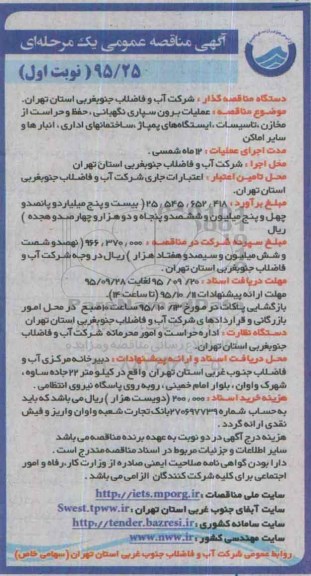 آگهی مناقصه عمومی یک مرحله‌ای
۹۵/۲۵ ( نوبت اول )
دستگاه مناقصه گذار : شرکت آب و فاضلاب جنوبغربی استان تهران.
موضوع مناقصه : عملیات برون سپاری نگهبانی ، حفظ و حراست از
مخازن ،تاسیسات ، ایستگاه‌های پمپاژ ،ساختمانهای اداری ، انبار ها و
سایر اماکن
مدت اجرای عملیات : ۱۲ ماه شمسی .
محل اجرا : شرکت آب و فاضلاب جنوبغربی استان تهران
محل تامین اعتبار : اعتبارات جاری شرکت آب و فاضلاب جنوبغربی
استان تهران.
مبلغ برآورد : ۴۱۸ , ۶۵۲ , ۵۴۵ , ۲۵ ( بیست و پنج میلیارد و پانصد و
چهل و پنج میلیون و ششصد و پنجاه و دو هزار و چهارصد و هجده )
ریال
مبلغ سپرده شرکت در مناقصه : ۰۰۰ , ۳۷۰ , ۹۶۶ ( نهصد و شصت
و شش میلیون و سیصد و هفتاد هزار ) ریال در وجه شرکت آب و
فاضلاب جنوبغربی استان تهران .
مهلت دریافت اسناد : ۲۰/ ۰۹/ ۹۵ لغایت ۹۵/۰۹/۲۸
مهلت ارائه پیشنهادات : ۱۱/ ۱۰/ ۹۵ (تا ساعت ۱۴).
بازگشایی پاکات در مورخ ۱۲/ ۱۰/ ۹۵ ساعت ۱۰ صبح در محل امور
بازرگانی و قراردادهای شرکت آب و فاضلاب جنوبغربی استان تهران
دستگاه نظارت : اداره حراست و امور محرمانه شرکت آب و فاضلاب
جنوبغربی استان تهران.
محل دریافت اسناد و ارائه پیشنهادات : دبیرخانه مرکزی آب و
فاضلاب جنوب غربی استان تهران واقع در کیلومتر ۲۲ جاده ساوه ،
شهرک واوان ، بلوار امام خمینی ، روبه روی پاسگاه نیروی انتظامی .
هزینه خرید اسناد : ۲۰۰,۰۰۰ (دویست هزار ) ریال می باشد که باید
به حساب شماره ۲۷۰۶۹۷۷۳۹ بانک تجارت شعبه واوان واریز و فیش
نقدی ارائه گردد .
هزینه درج آگهی در دو نوبت به عهده برنده مناقصه می باشد
سایر اطلاعات و جزئیات مربوط در اسناد مناقصه مندرج است .
دارا بودن گواهی نامه صلاحیت ایمنی صادره از وزارت کار ،رفاه و امور
اجتماعی برای کلیه شرکت کنندگان الزامی می باشد .
سایت ملی مناقصات : http://iets.mporg.ir
سایت آبفای جنوب غربی استان تهران : Swest.tpww.ir
سایت سامانه کشوری : http://tender.bazresi.ir
سایت مهندسی کشور : www.nww.ir
روابط عمومی شرکت آب و فاضلاب جنوب غربی استان تهران (سهامی خاص)